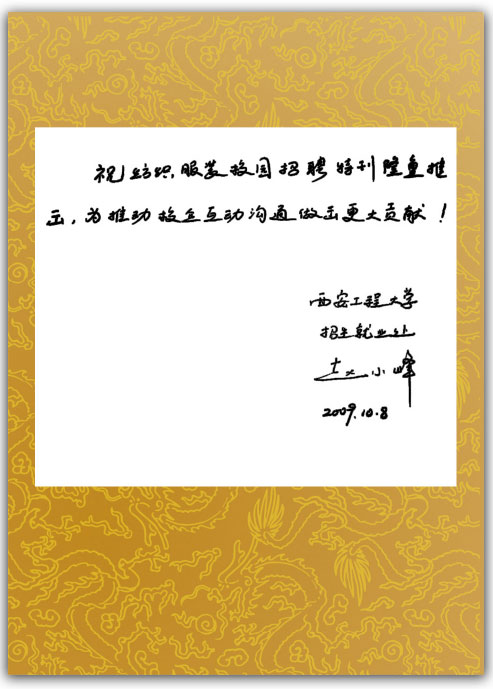 祝纺织、服装校园招聘特刊隆重推
出，为推动校企互动沟通做出更大贡献！
西安工程大学
招生就业处
赵小峰
2009.10.8